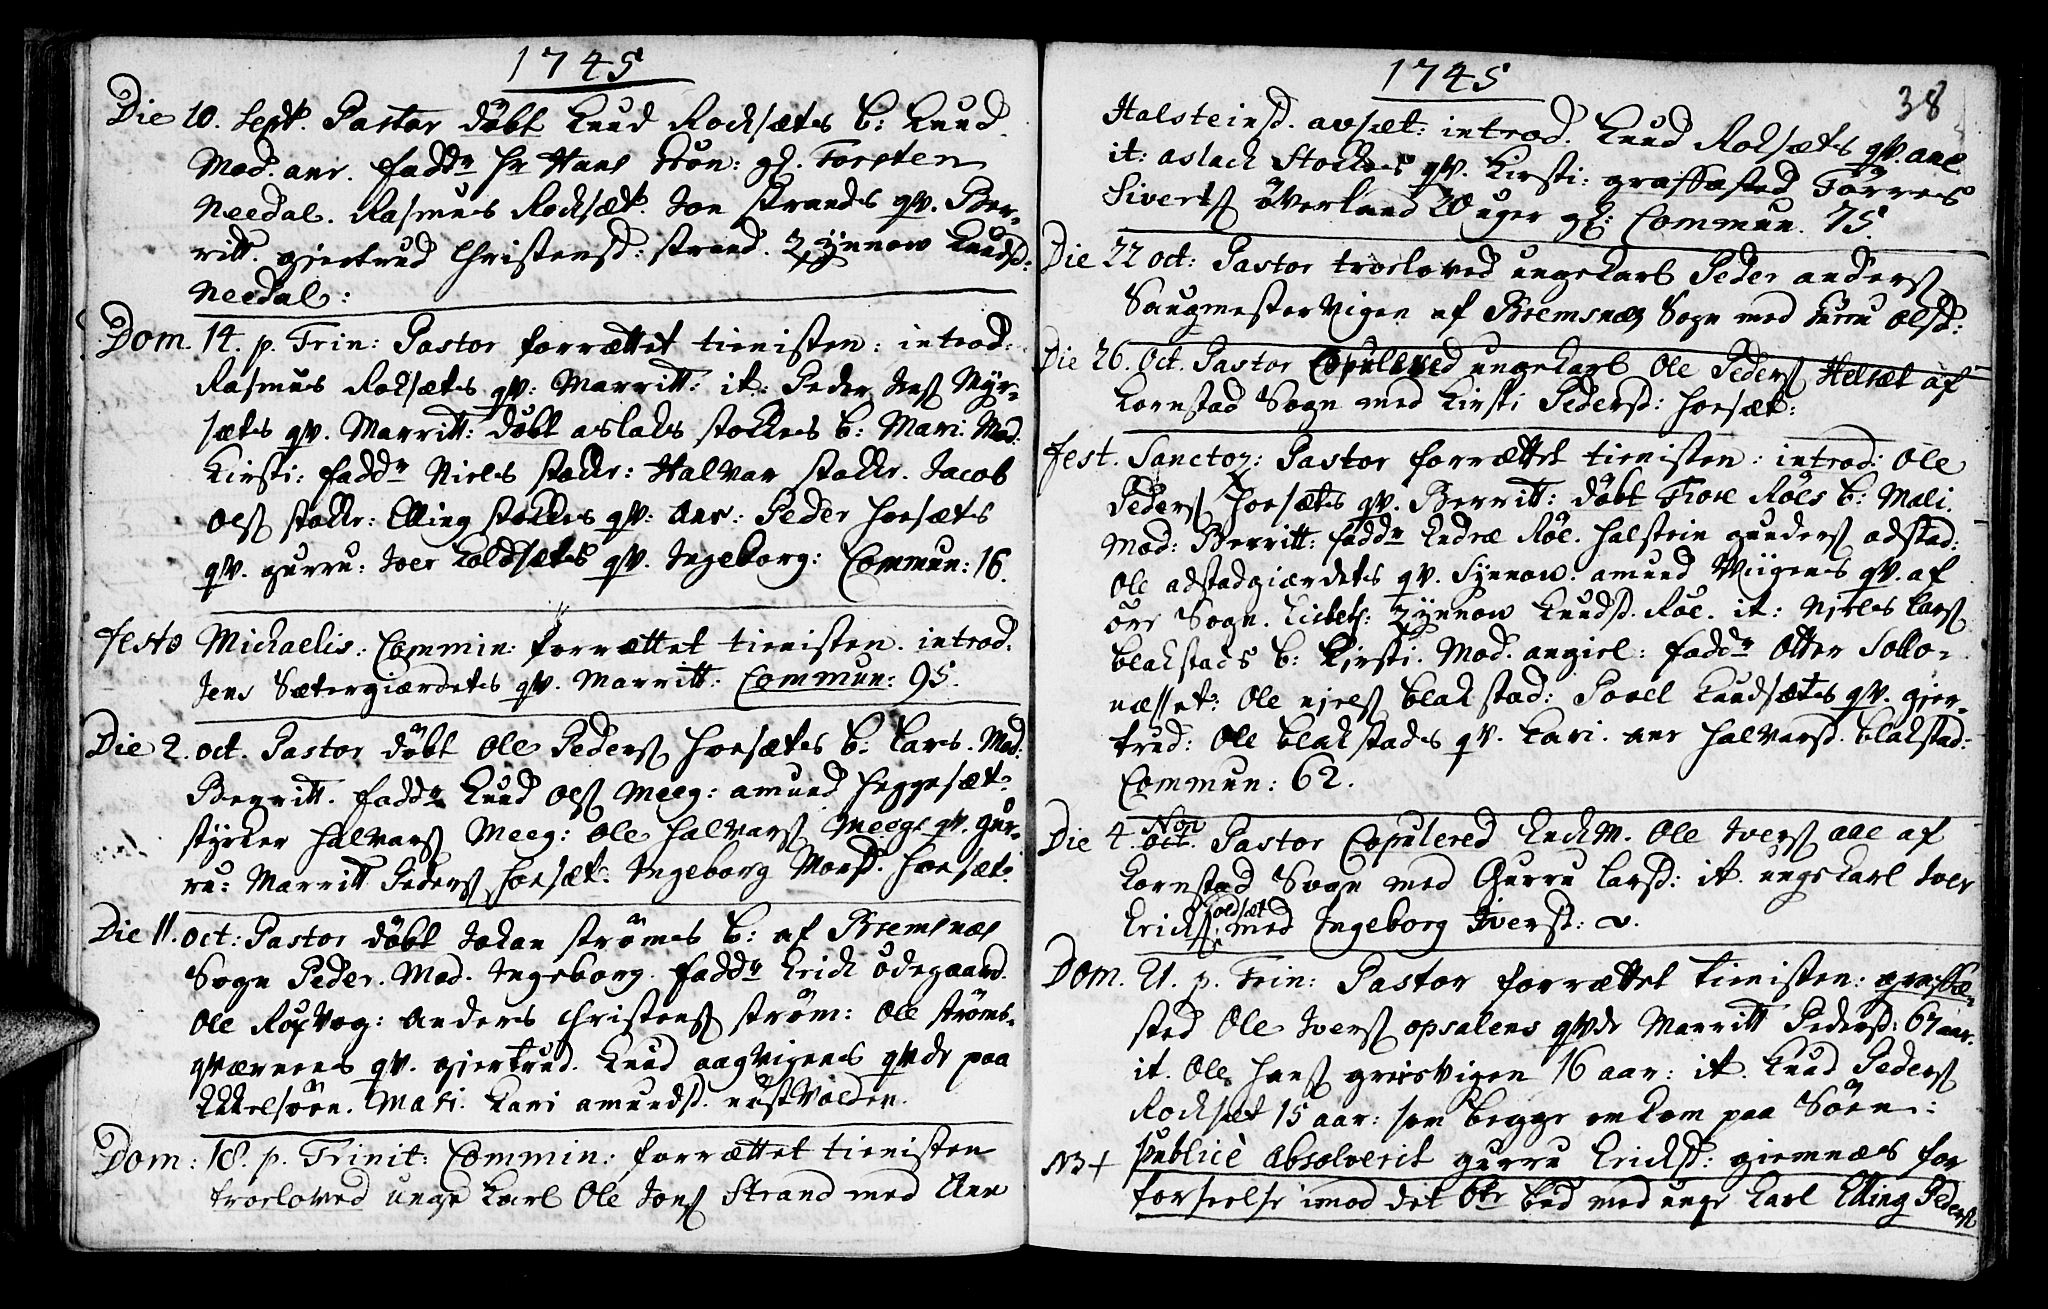 1745
Die 10. Sept. Pastor döbt Knud Rocksæts b: Knud.
Mod. anr. fadd.r Hr Hans Thon: gl. Torsten
Needal. Rasmus Rocksæt. Jon Strands qv. Ber-
ritt. gjertrud Christensd: strand. Zÿnnow Knudsd:
Needal:
Dom. 14. p. Trin: Pastor forrættet tienisten: introd:
Rasmus Roksæts qv: Marritt: it: Peder Jens Mÿr-
sæts qv. Marritt: döbt aslaks stokkes b: Mari. Mod:
Kirsti: fadd.r Niels stokke: Halvar stokke. Jacob
Ols stokke: Elling stokkes qv: Anr: Peder hoesæts
qv. gurru: Iver Koldsæts qv. Ingeborg: Commun: 16.
festo Michaelis: Commin: forrættet tienisten. introd.
Jens Sætergiærdets qv. Marritt: Commun: 95.
Die 2. oct. Pastor döbt Ole Peders hoesæts b: Lars. Mod:
Berritt. fadd.r Knud Ols Meeg: amund heggesæt:
stÿrker halvars Meeg: Ole halvars Meegs qv. gur-
ru: Marritt Peders hoesæt. Ingeborg Morsd. hoesæt:
Die 11. oct: Pastor döbt Johan ströms b: af Bremsnæs
Sogn Peder. Mod. Ingeborg. fadd.r Erick ödegaard.
Ole Röxvog: Anders Christens ström: Ole ströms-
qværnens qv. gjertrud. Knud aagvigens qvde paa
Ekkelsöen. Mari. Kari amundsd. nustvolden.
Dom: 18. p. Trinit: Commin: forrættet tienisten
troeloved unge Karl Ole Jons Strand med Ane
1745
38
Halsteinsd. avsæt: introd. Knud Roksæts qv. ane
it: aslach Stockes qv. Kirsti: graffæsted Torres
Siverts överland 20 uger gl: Commun. 75.
Die 22 oct: Pastor troeloved ungekarl Peder anders
Saugmestervigen af Bremsnæs Sogn med Gurru Olsd:
Die 26. Oct. Pastor Copulered ungekarl Ole Peders Helsæt af
Kornstad Sogn med Kirsti Pedersd: hoesæt:
fest. Sanctor: Pastor forrættet tienisten: introd: Ole
Peders hoesæts qv. Berritt: döbt Tore Röes b: Mali.
Mod: Berritt: fadd.r Endre Röe. halstein gunders adstad:
Ole adstadgiærdets qv. Synnow. amund Viigens qv. af
öre Sogn. Lisbeth: Zÿnnow Knudsd. Röe. it: Njels Lars
blakstads b: Kirsti. Mod. angiel: fadd.r Otter Sollo-
næsset: Ole njels blakstad: Povel Knudsæts qv. gjer-
trud: Ole blakstads qv. Kari. anr halvarsd. blakstad:
Commun: 62.
Die 4. Nov Pastor Copulered Enckm. Ole Ivers aae af
Kornstad Sogn med Gurru Larsd: it. ungekarl Iver
Ericks Koldsæt med Ingeborg Iversd: v.
Dom. 21. p. Trin: Pastor forrættet tienisten: graffæ-
sted Ole Ivers opsalens qvde Marritt Pedersd: 67 aar.
it. Ole hans griisvigen 16 aar: it. Knud Peders
Rocksæt 15 aar: som begge omkom paa Söen:
NB + publicè absolverit gurru Ericksd: giemnæs for
forseelse imod det 6te bud med unge Karl Elling Peders